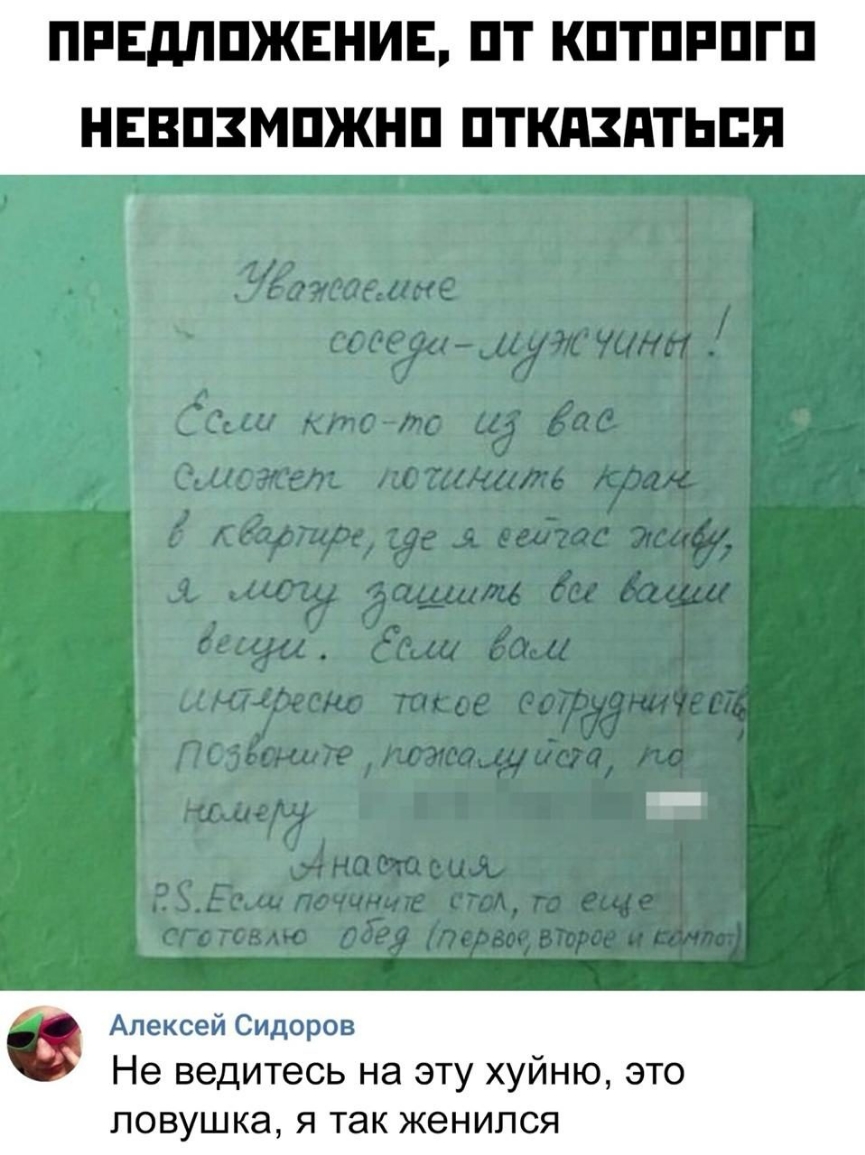 ПРЕДЛОЖЕНИЕ, ОТ КОТОРОГО
НЕВОЗМОЖНО ОТКАЗАТЬСЯ
Уважаемые
соседи-мужчины!
Если кто-то из вас
сможет починить кран
в квартире, где я сейчас живу,
я могу зашить все ваши
вещи. Если вам
интересно такое сотрудничеств,
позвоните, пожалуйста, по
номеру
Анастасия
P.S. Если почините стол, то еще
сготовлю обед (первое, второе и компот)
Алексей Сидоров
Не ведитесь на эту хуйню, это
ловушка, я так женился